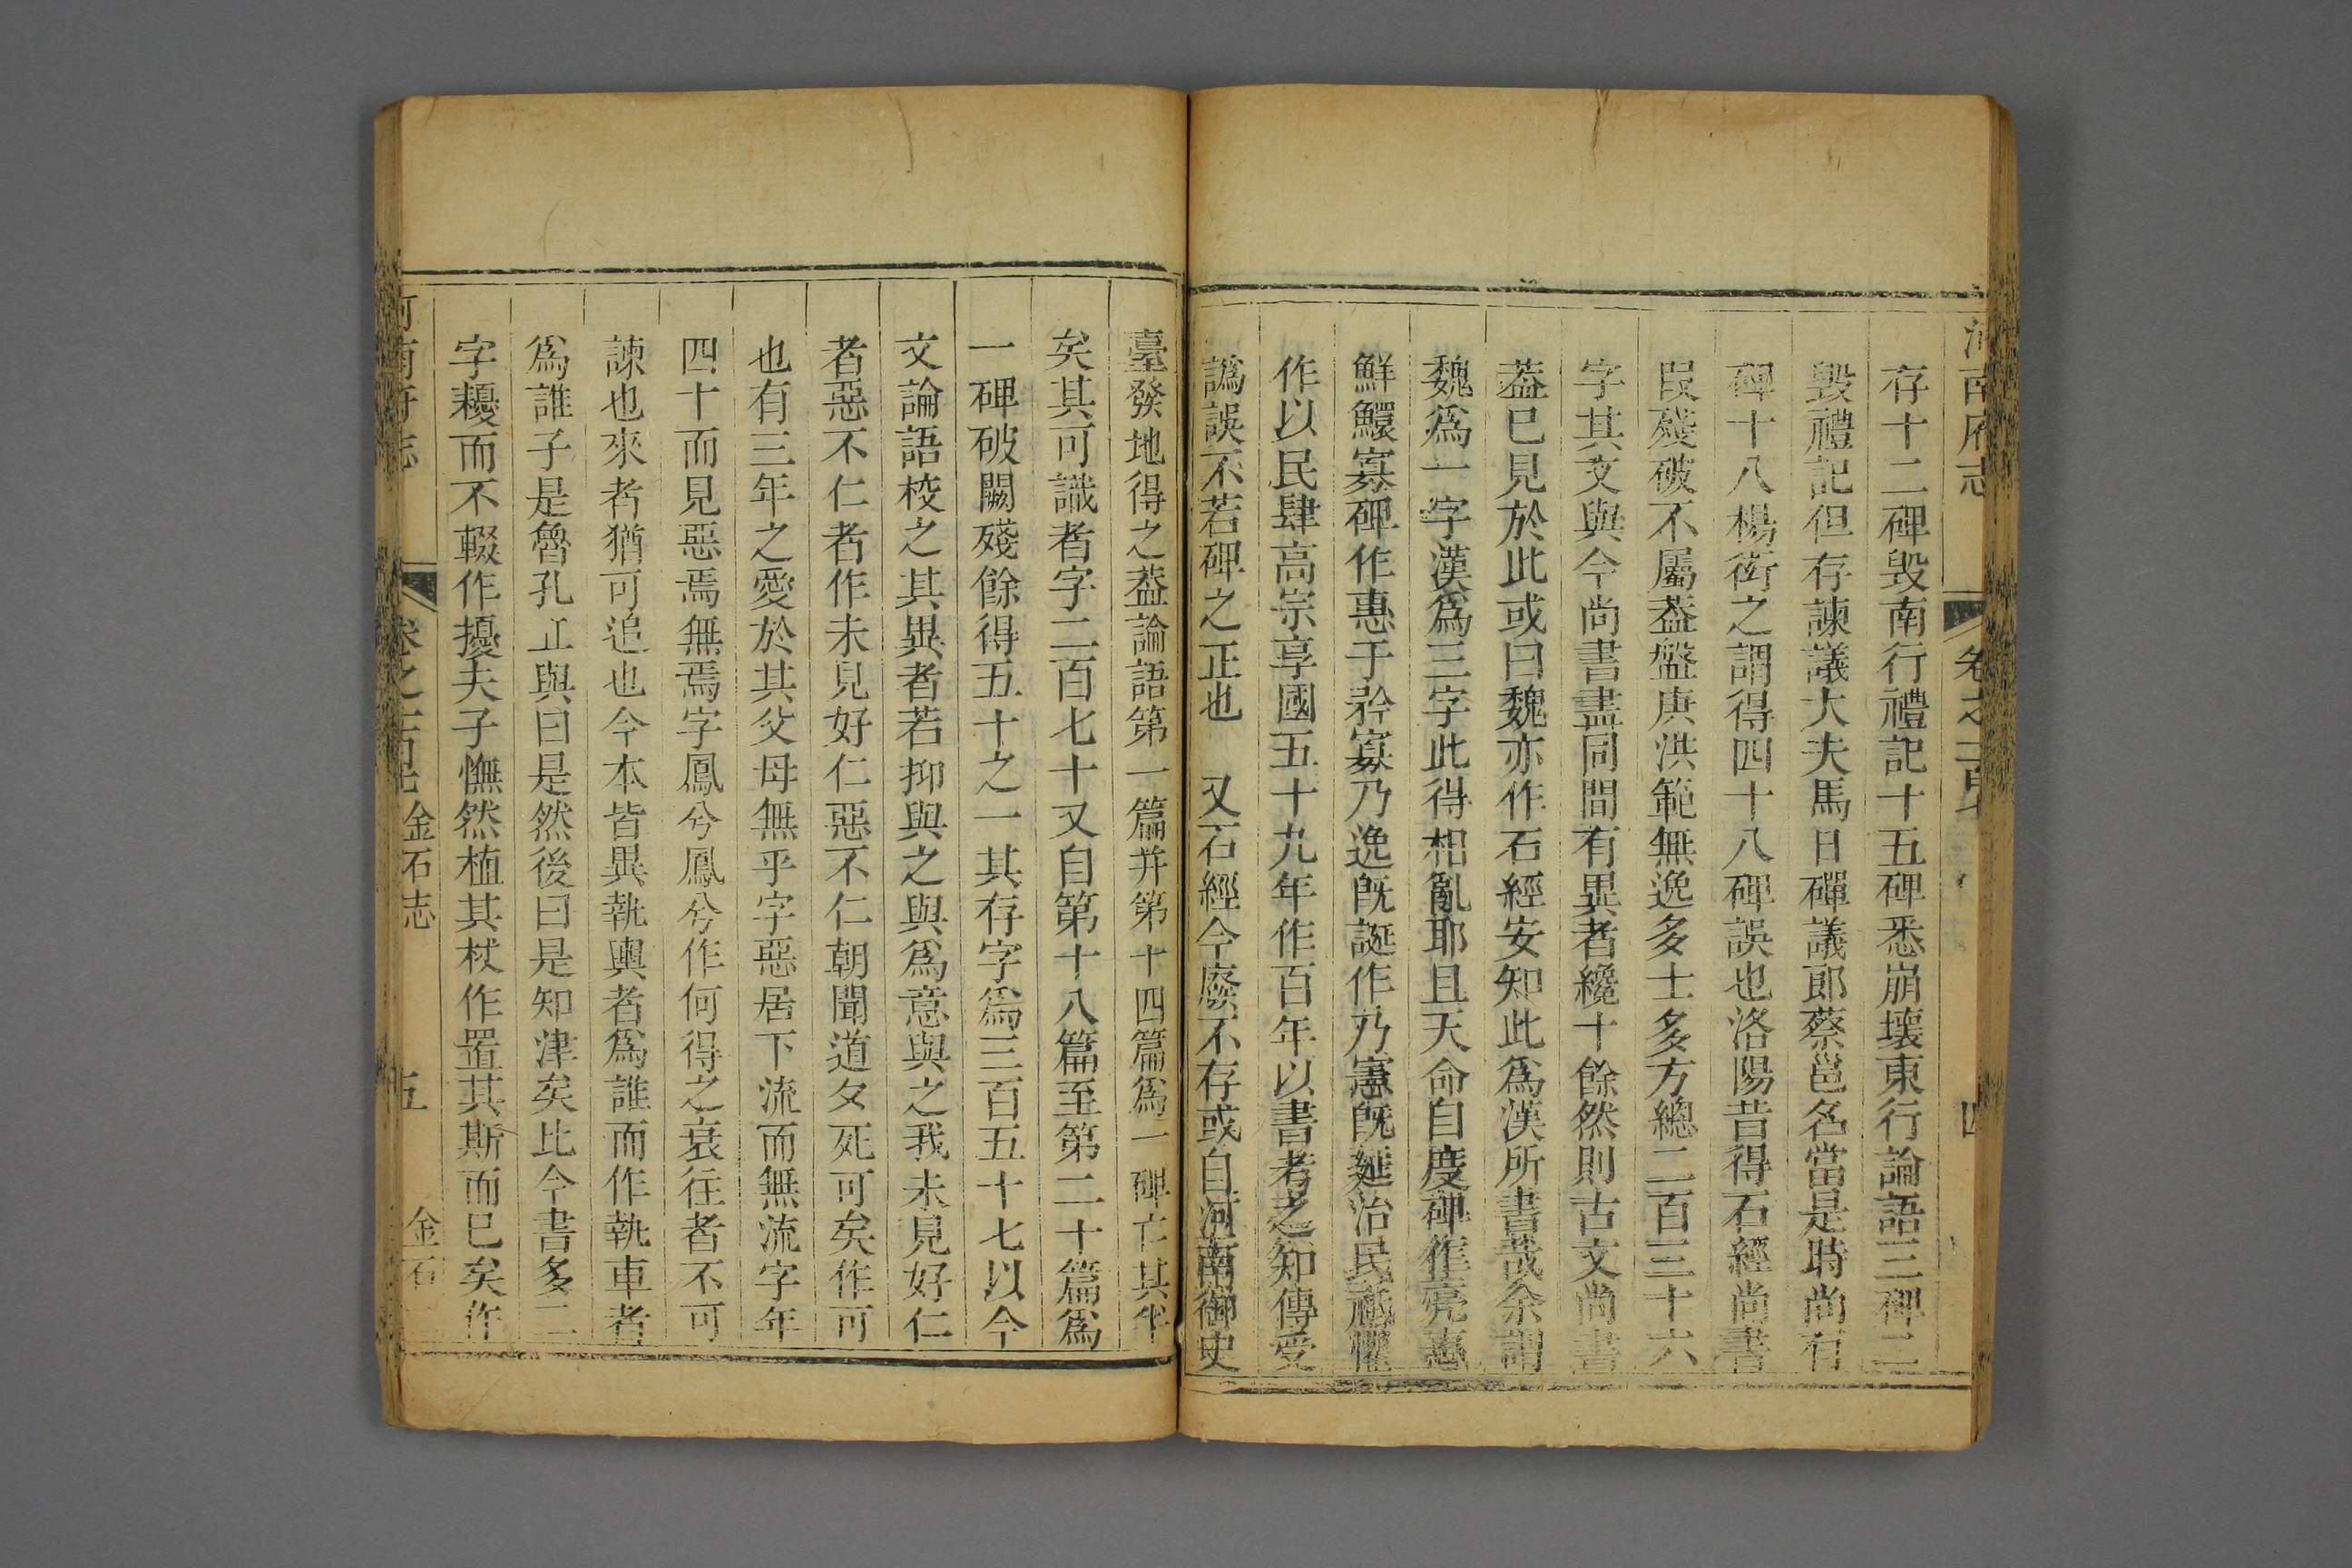 河南府志 卷之一百七 四
存十二碑毀南行禮記十五碑悉崩壞東行論語三碑二
毀禮記但存諫議大夫馬日磾議郎蔡邕名當是時尚有
碑十八楊衒之謂得四十八碑誤也洛陽昔得石經尚書
段殘破不屬葢盤庚洪範無逸多士多方總二百三十六
字其文與今尚書盡同間有異者纔十餘然則古文尚書
葢已見於此或曰魏亦作石經安知此為漢所書哉余謂
魏為一字漢為三字此得相亂耶且天命自度碑作亮惠
鮮鰥寡碑作惠于矜寡乃逸旣誕作乃憲旣延治民祗懼
作以民肆高宗享國五十九年作百年以書考之知傳受
譌誤不若碑之正也 又石經今廢不存或自河南御史
臺發地得之葢論語第一篇并第十四篇為一碑亡其半
矣其可識者字二百七十又自第十八篇至第二十篇為
一碑破闕殘餘得五十之一其存字為三百五十七以今
文論語校之其異者若抑與之與為意與之我未見好仁
者惡不仁者作未見好仁惡不仁朝聞道夕死可矣作可
也有三年之愛於其父母無乎字惡居下流而無流字年
四十而見惡焉無焉字鳳兮鳳兮作何得之衰往者不可
諫也來者猶可追也今本皆異執輿者為誰而作執車者
為誰子是魯孔丘與曰是然後曰是知津矣比今書多二
字耰而不輟作擾夫子憮然植其杖作置其斯而已矣作
河南府志 卷之一百七 金石志 五 金石